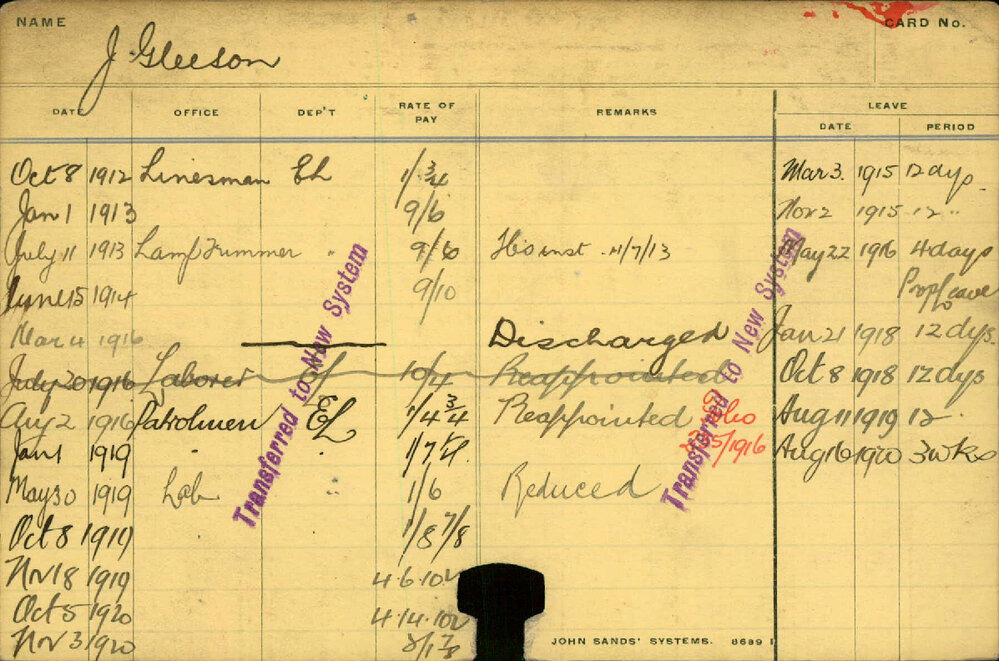 NAME
CARD No.
J. Gleeson
DATE OFFICE DEP'T RATE OF PAY REMARKS LEAVE
DATE PERIOD
Oct 8 1912 Linesman EL 1/3/4 Mar 3. 1915 12 dys.
Jan 1 1913 9/6 Nov 2 1915 12 "
July 11 1913 Lamp Trimmer " 9/6 inst. 11/7/13 May 22 1916 4 days
June 15 1914 9/10 leave
Mar 4 1916 Discharged Jan 21 1918 12 dys.
July 20 1916 Laborer 10/4 Reappointed Oct 8 1918 12 dys
Aug 2 1916 Patrolman EL 1/4 3/4 Reappointed Aug 11 1919 12 "
5/1916
Jan 1 1919 " " 1/7 Aug 16 1920 3 wks
May 30 1919 Lab " 1/6 Reduced
Oct 8 1919 1/8 7/8
Nov 18 1919 4.6.10
Oct 5 1920 4.14.10
Nov 3 1920
Transferred to New System
Transferred to New System
JOHN SANDS' SYSTEMS. 8689